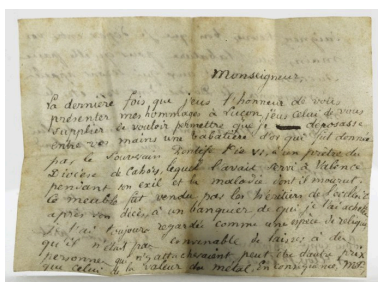 Monseigneur,
La dernière fois que j'eus l'honneur de vous
présenter mes hommages à Luçon, j'eus celui de vous
supplier de vouloir permettre que je déposasse
entre vos mains une tabatière d'or qui fut donnée
par le Souverain Pontife Pie VI à un prêtre du
Diocèse de Cahors, lequel l'avait servi à Valence
pendant son exil et la maladie dont il mourut.
Ce meuble fut vendu par les héritiers de l'ecclésit.
après son décès, à un banquier de qui je l'ai acheté.
Je l'ai toujours regardé comme une espèce de relique
qu'il n'était pas convenable de laisser à des
personnes qui n'y attacheraient peut être d'autre prix
que celui de la valeur du métal. en conséquence, Mgr